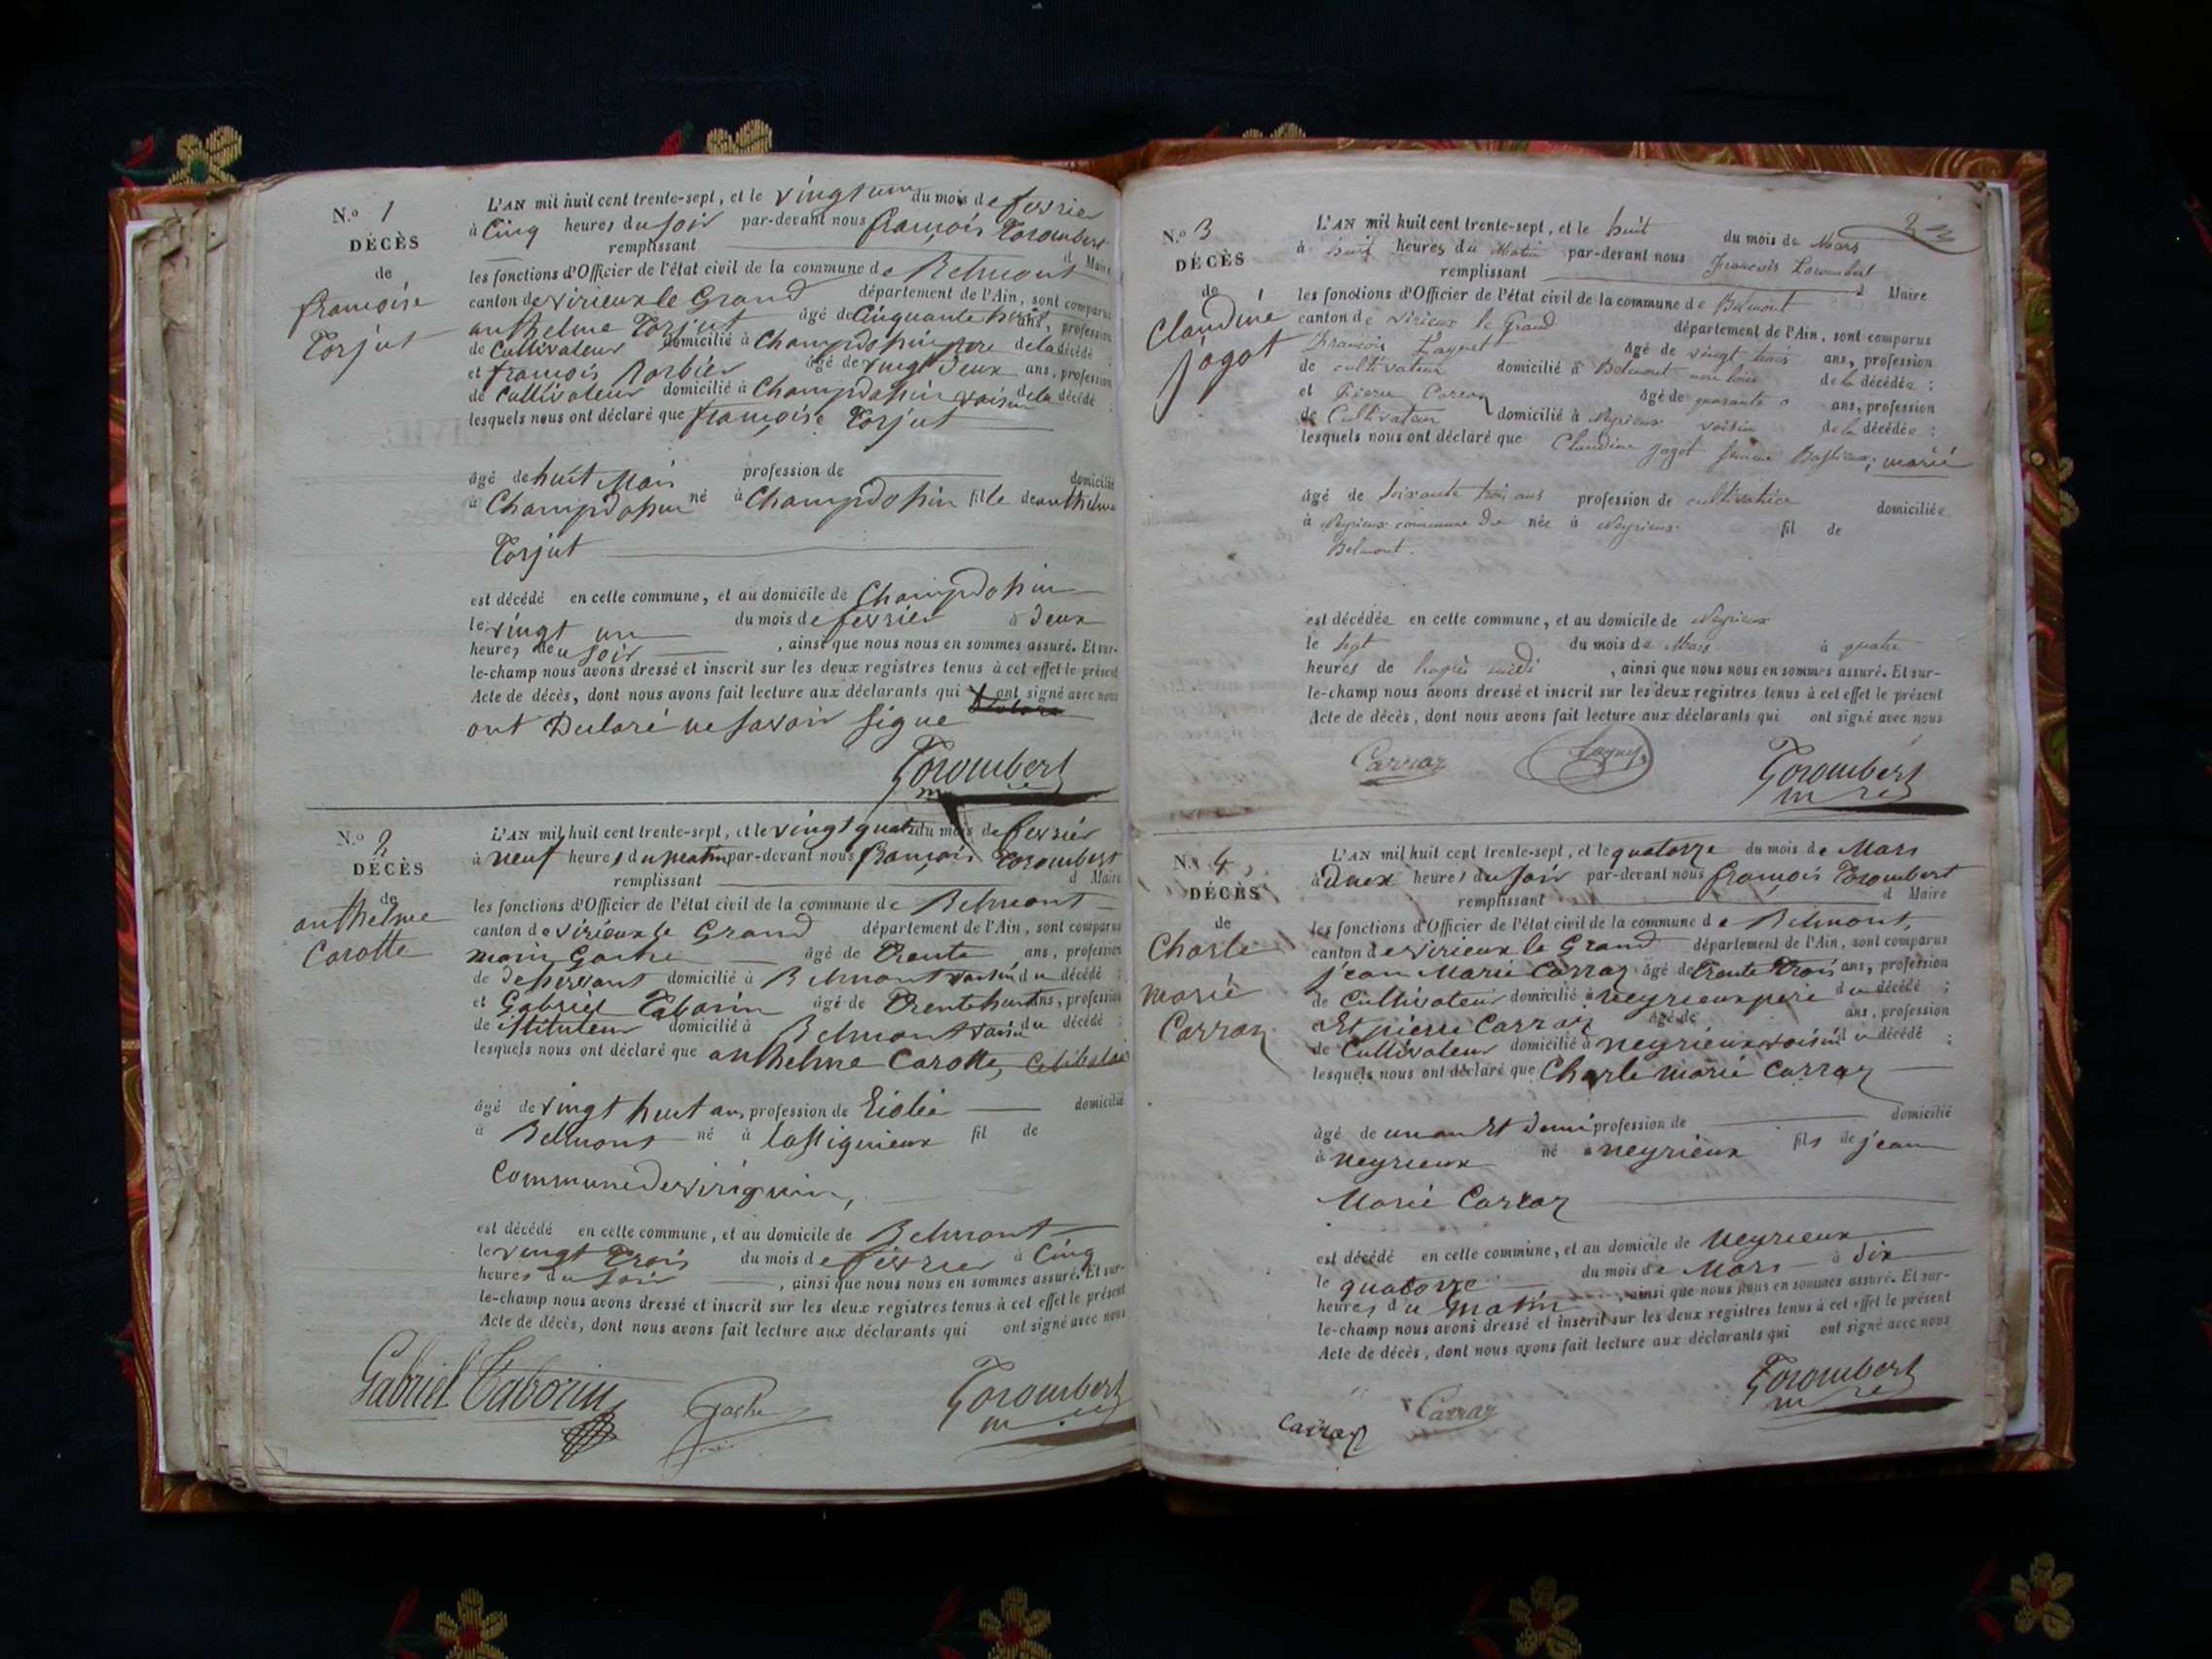 N.o 1
DÉCÈS
de
françoise
Torjut
L'AN mil huit cent trente-sept, et le vingt un du mois de fevrier
à Cinq heures du soir par-devant nous françois Torombert
remplissant d Maire
les fonctions d'Officier de l'état civil de la commune de Belmont
canton de virieux le Grand département de l'Ain, sont comparus
anthelme Torjut âgé de Cinquante huit ans, profession
de Cultivateur domicilié à Champdossin pere de la décédé ;
et françois Barbier âgé de vingt deux ans, profession
de Cultivateur domicilié à Champdossin voisin de la décédé ;
lesquels nous ont déclaré que françoise Torjut
âgé de huit Mois profession de domicilié
à Champdossin né à Champdossin fille de anthelme
Torjut
est décédé en cette commune, et au domicile de Champdossin
le vingt un du mois de fevrier à deux
heures du soir , ainsi que nous nous en sommes assuré. Et sur-
le-champ nous avons dressé et inscrit sur les deux registres tenus à cet effet le présent
Acte de décès, dont nous avons fait lecture aux déclarants qui ont signé avec nous
ont Declaré ne savoir signe
Torombert
N.o 2
DÉCÈS
de
anthelme
Carotte
L'AN mil huit cent trente-sept, et le vingt quatre du mois de fevrier
à neuf heures du matin par-devant nous françois Torombert
remplissant d Maire
les fonctions d'Officier de l'état civil de la commune de Belmont
canton de virieux le Grand département de l'Ain, sont comparus
âgé de Trente ans, profession
de desservant domicilié à Belmont voisin du décédé ;
et Gabriel Taborin âgé de Trente huit ans, profession
de istituteur domicilié à Belmont voisin du décédé ;
lesquels nous ont déclaré que anthelme Carotte, Celibataire
âgé de vingt huit ans profession de domicilié
à Belmont né à fil de
Commune de virignin,
est décédé en cette commune, et au domicile de Belmont
le vingt Trois du mois de fevrier à Cinq
heures du soir , ainsi que nous nous en sommes assuré. Et sur-
le-champ nous avons dressé et inscrit sur les deux registres tenus à cet effet le présent
Acte de décès, dont nous avons fait lecture aux déclarants qui ont signé avec nous
Gabriel Taborin Torombert
N.o 3
DÉCÈS
de
Claudine
jagot
L'AN mil huit cent trente-sept, et le huit du mois de Mars
à huit heures du Matin par-devant nous François Torombert
remplissant d Maire
les fonctions d'Officier de l'état civil de la commune de Belmont
canton de virieux le Grand département de l'Ain, sont comparus
François âgé de vingt trois ans, profession
de cultivateur domicilié à Belmont de la décédée ;
et Pierre Carraz âgé de quarante ans, profession
de Cultivateur domicilié à Neyrieux voisin de la décédée ;
lesquels nous ont déclaré que Claudine jagot marié
âgé de soixante trois ans profession de cultivatrice domiciliée
à Neyrieux commune de née à Neyrieux fil de
Belmont.
est décédée en cette commune, et au domicile de Neyrieux
le sept du mois de Mars à quatre
heures de , ainsi que nous nous en sommes assuré. Et sur-
le-champ nous avons dressé et inscrit sur les deux registres tenus à cet effet le présent
Acte de décès, dont nous avons fait lecture aux déclarants qui ont signé avec nous
Carraz Torombert
N.o 4
DÉCÈS
de
Charle
Marie
Carraz
L'AN mil huit cent trente-sept, et le quatorze du mois de Mars
à deux heures du soir par-devant nous françois Torombert
remplissant d Maire
les fonctions d'Officier de l'état civil de la commune de Belmont,
canton de virieux le Grand département de l'Ain, sont comparus
jean Marie Carraz âgé de Trente Trois ans, profession
de Cultivateur domicilié à neyrieux pere du décédé ;
Et pierre Carraz âgé de ans, profession
de Cultivateur domicilié à neyrieux voisin du décédé ;
lesquels nous ont déclaré que Charle Marie Carraz
âgé de un an Et demi profession de domicilié
à neyrieux né à neyrieux fils de jean
Marie Carraz
est décédé en cette commune, et au domicile de neyrieux
le quatorze du mois de Mars à dix
heures du matin , ainsi que nous nous en sommes assuré. Et sur-
le-champ nous avons dressé et inscrit sur les deux registres tenus à cet effet le présent
Acte de décès, dont nous avons fait lecture aux déclarants qui ont signé avec nous
Carraz Carraz Torombert